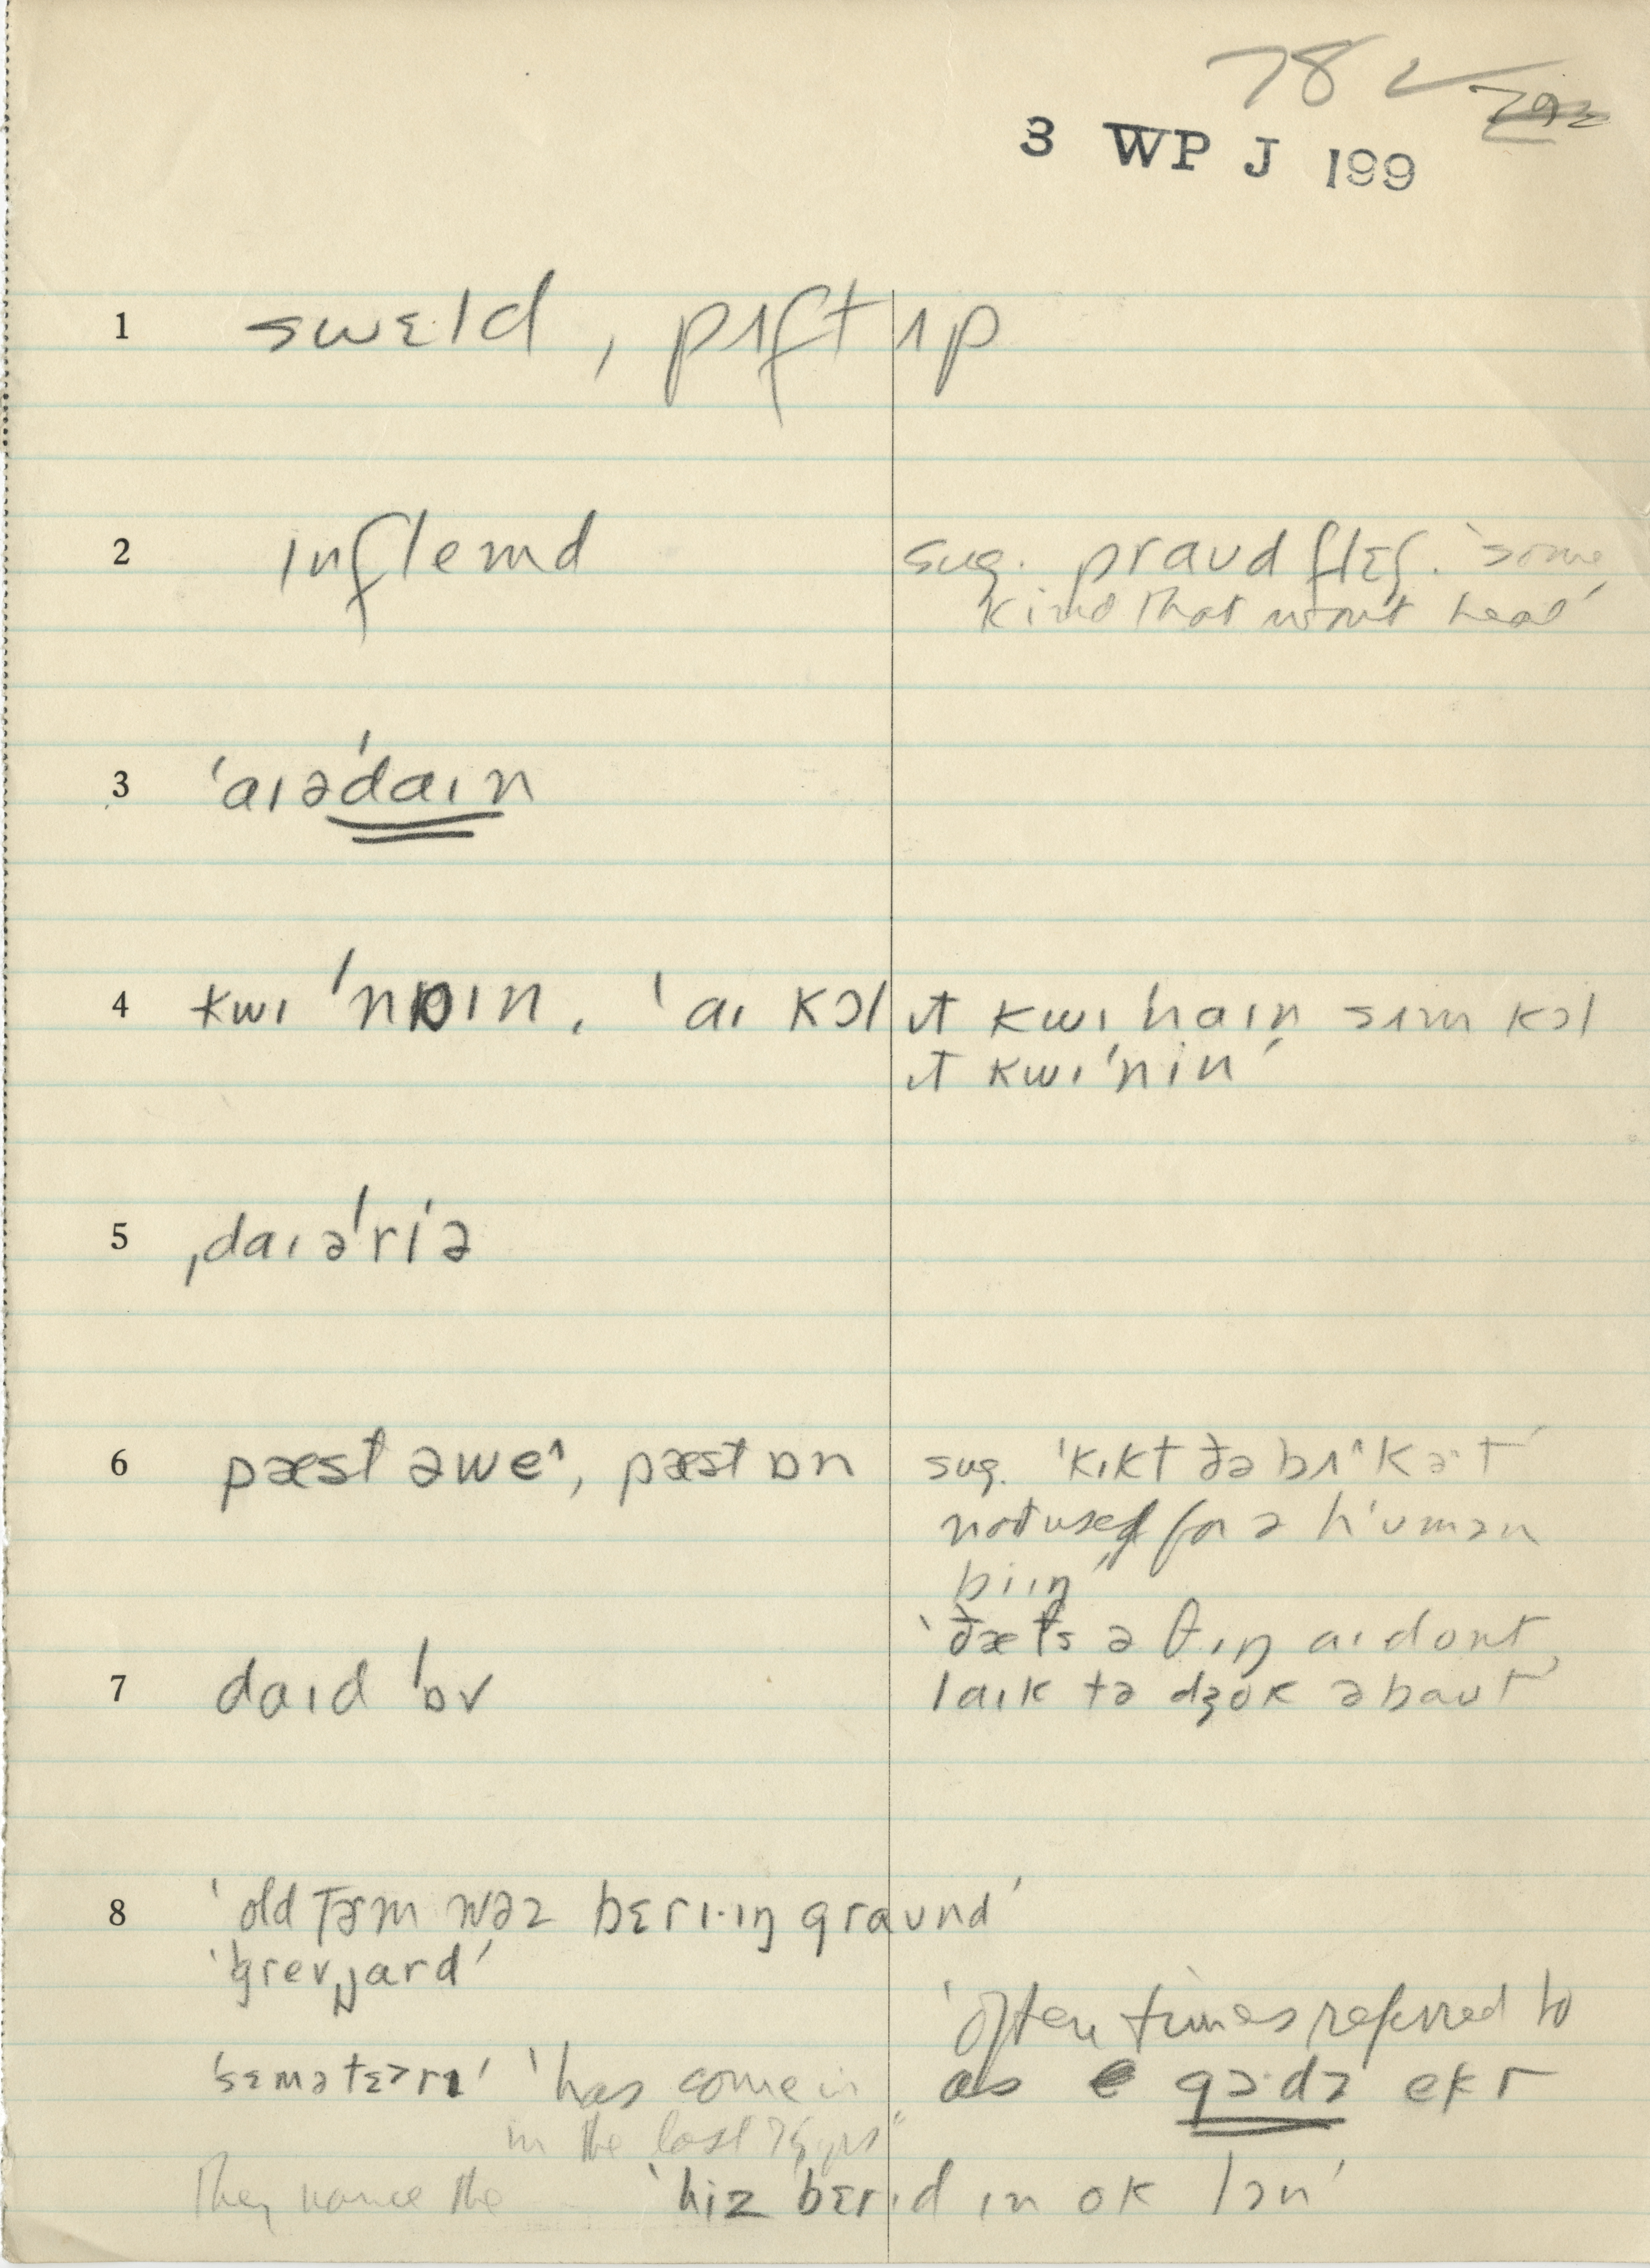 78 ✓
3 WP J 199
1 swɛld, pʌft ʌp
2 ɪnflemd sug. praʊd flɛʃ. 'some
kind that won't heal'
3 'aɪə'daɪn
4 kwɪ'naɪn, 'aɪ kɔl ɪt kwɪnaɪn sʌm kɔl
ɪt kwɪ'nin'
5 ˌdaɪə'riə
6 pæst əwe^, pæst ɒn sug. 'kɪkt ðə bʌ^kət'
not used for ə hʼumən
biɪŋ"
'ðæts ə θɪŋ aɪ dont
7 daɪd 'ɒv laɪk tə dʒok əbaʊt'
8 'old tɚm wəz bɛrɪ·ɪŋ graʊnd'
'grevˌjard'
'often times referred to
'sɛmətɛərɪ' 'has come in as gɔdz ekr
in the last 75 yrs"
They name the 'hiz bɛrɪd ɪn ok lɔn'